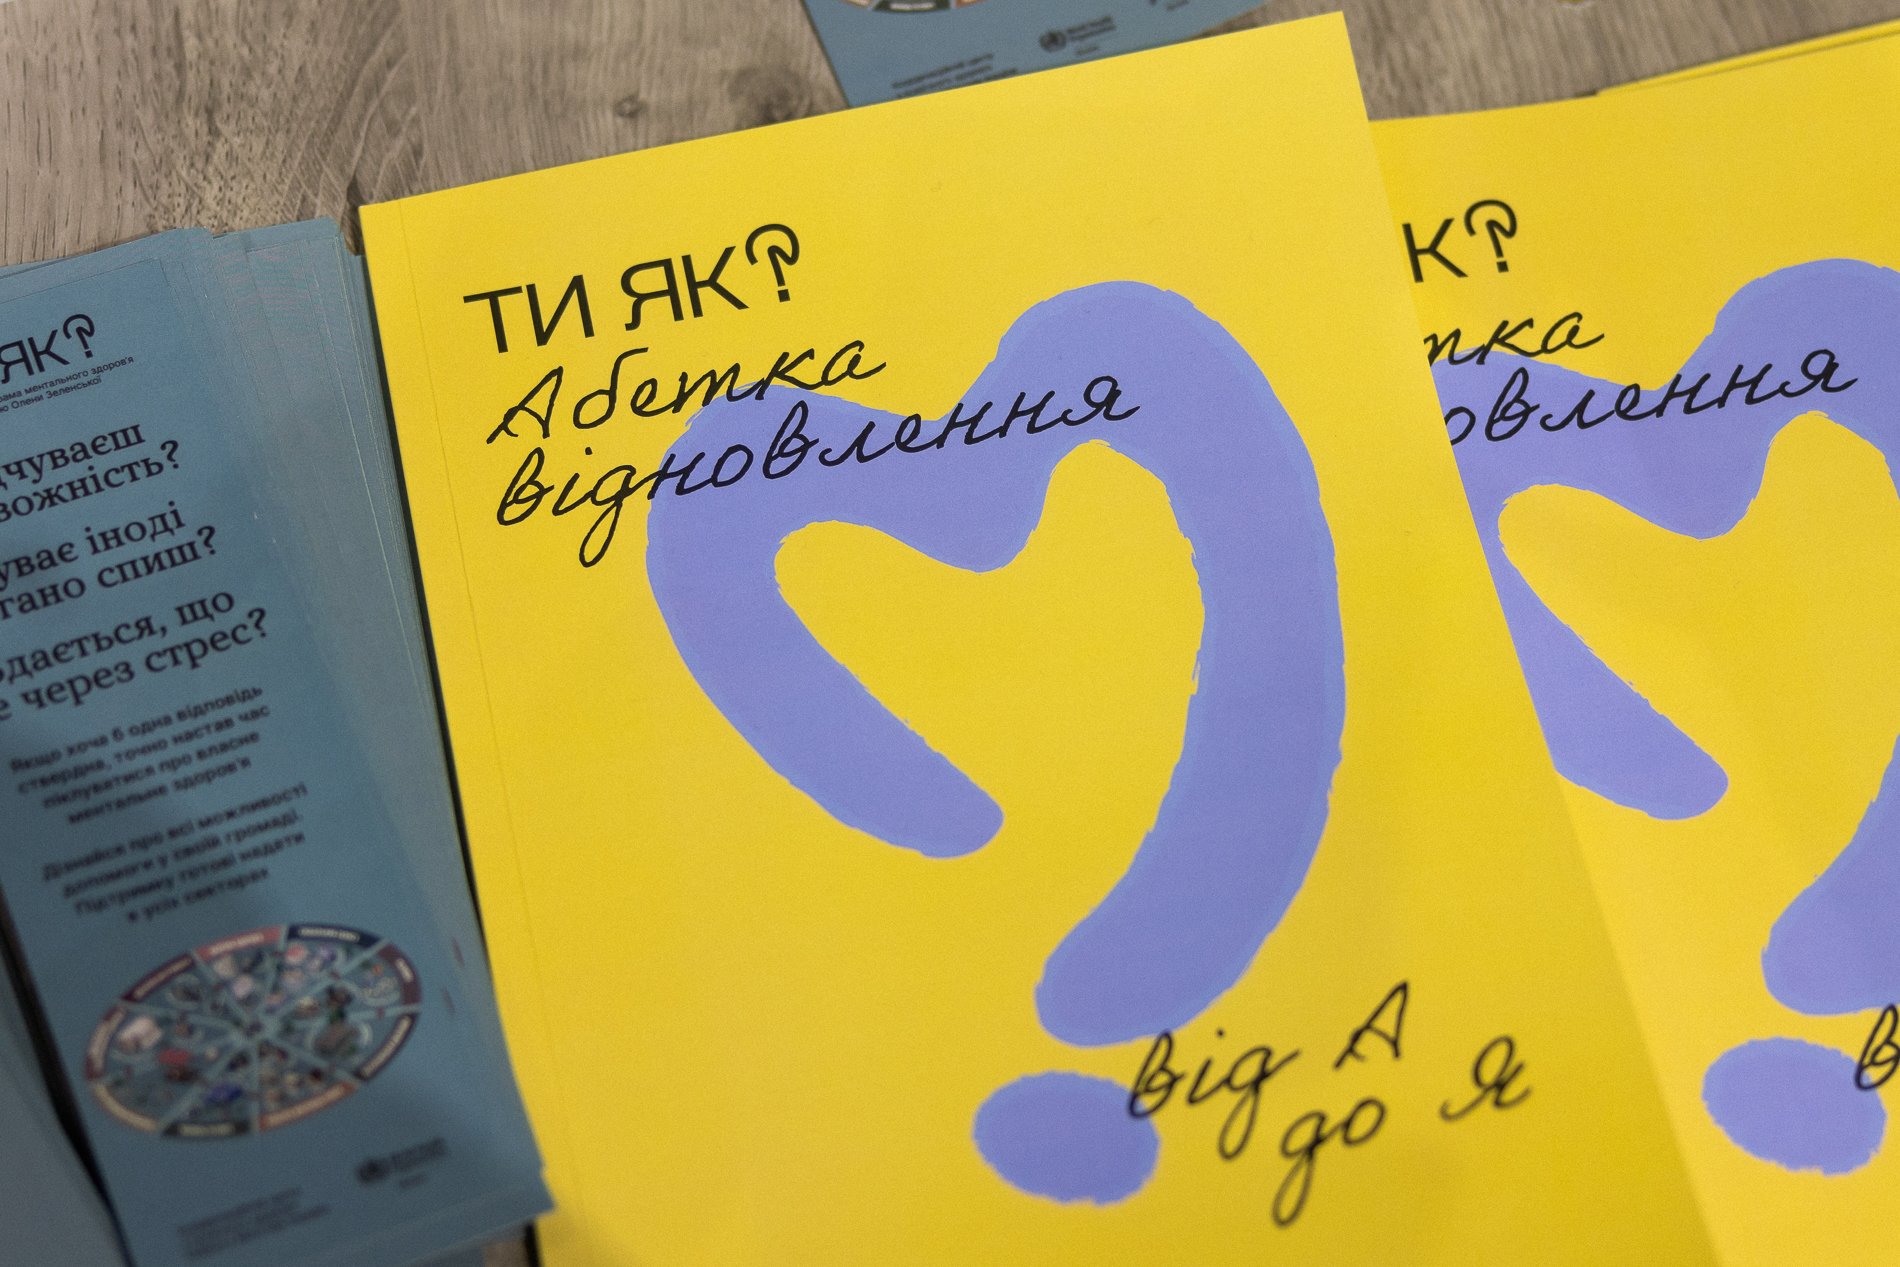 ЯК?
рама ментального здоров'я
ю Олени Зеленської
дчуваєш
вожність?
уває іноді
гано спиш?
здається, що
е через стрес?
Якщо хоча б одна відповідь
ствердна, точно настав час
піклуватися про власне
ментальне здоров'я
Дізнайся про всі можливості
допомоги у своїй громаді.
Підтримку готові надати
в усіх секторах
ТИ ЯК?
Абетка
відновлення
від А
до Я
К?
тка
овлення
в